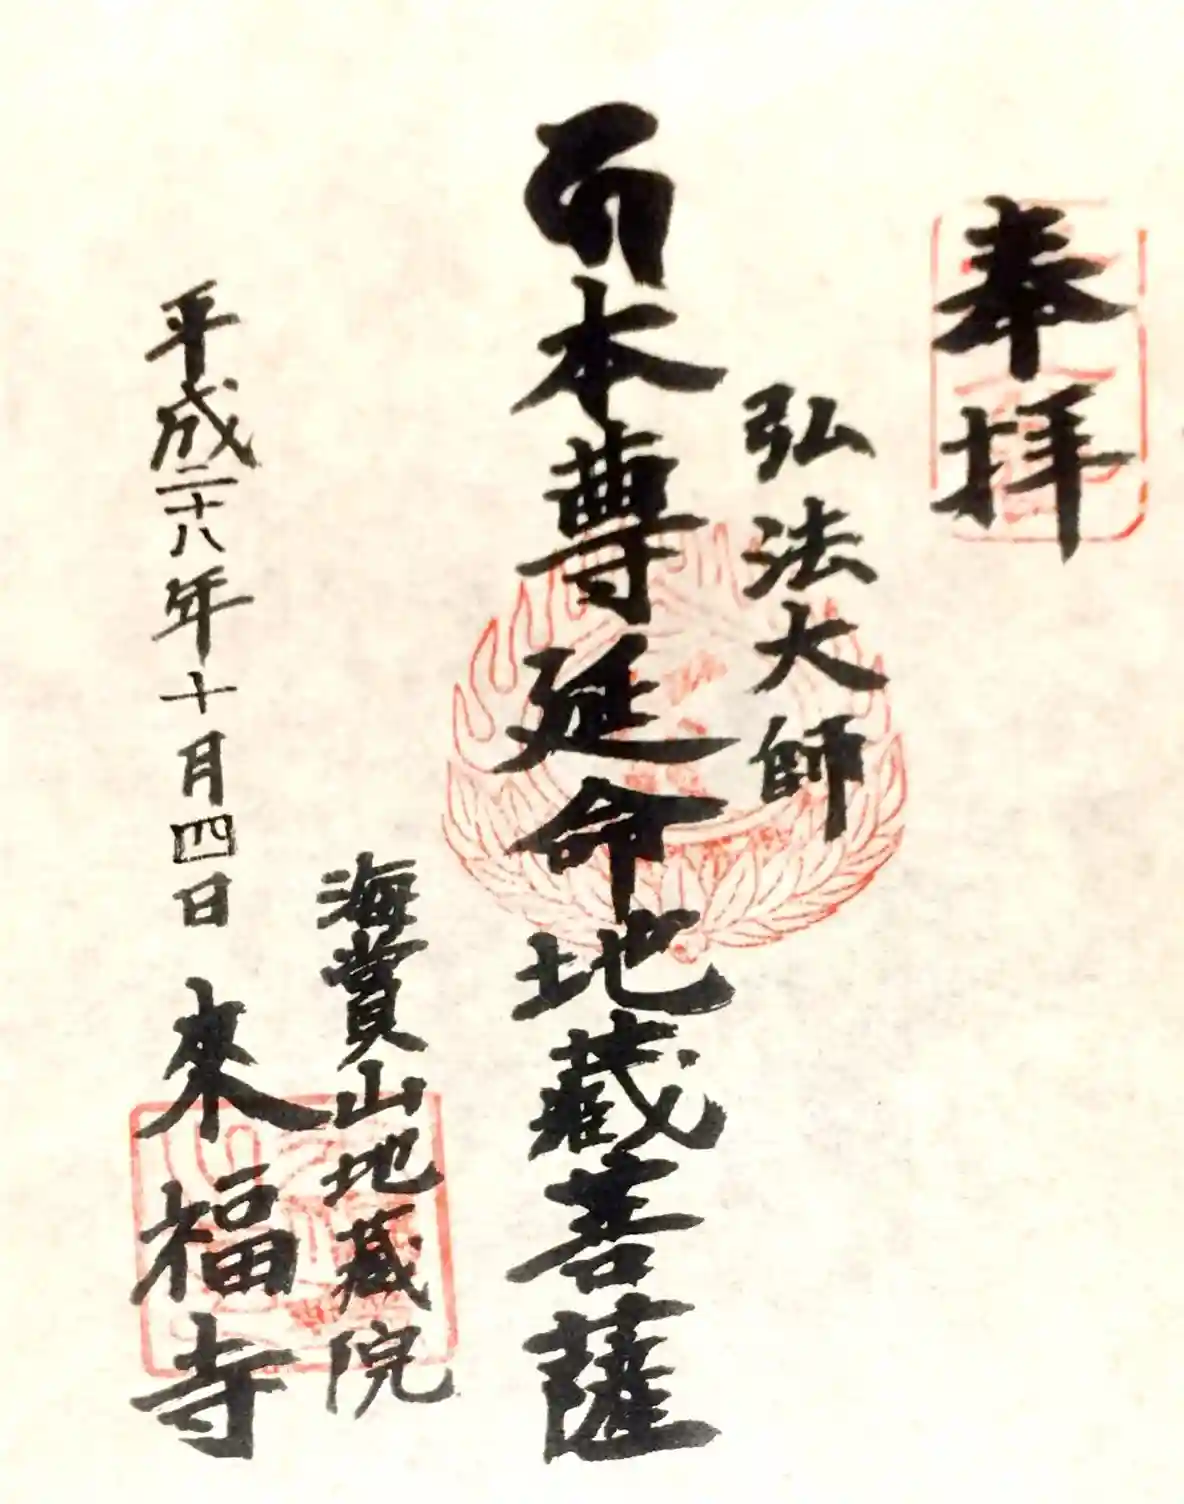 奉拝
弘法大師
本尊延命地蔵菩薩
海賞山地蔵院
平成二十八年十月四日 來福寺